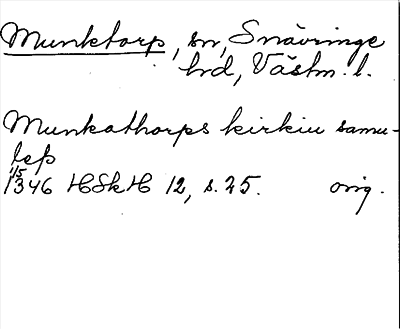 Munktorp, sn, Snävringe
hd, Västm. l.
Munkathorps kirkiu samu-
lep
1/5
1346 HSkH 12, s. 25. orig.